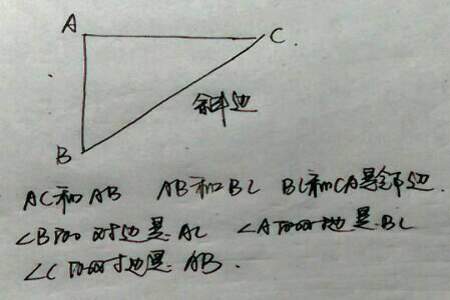 A
C
斜边
B
AC和AB AB和BC BC和CA是邻边.
∠B的对边是AC ∠A的对边是BC
∠C的对边是AB.